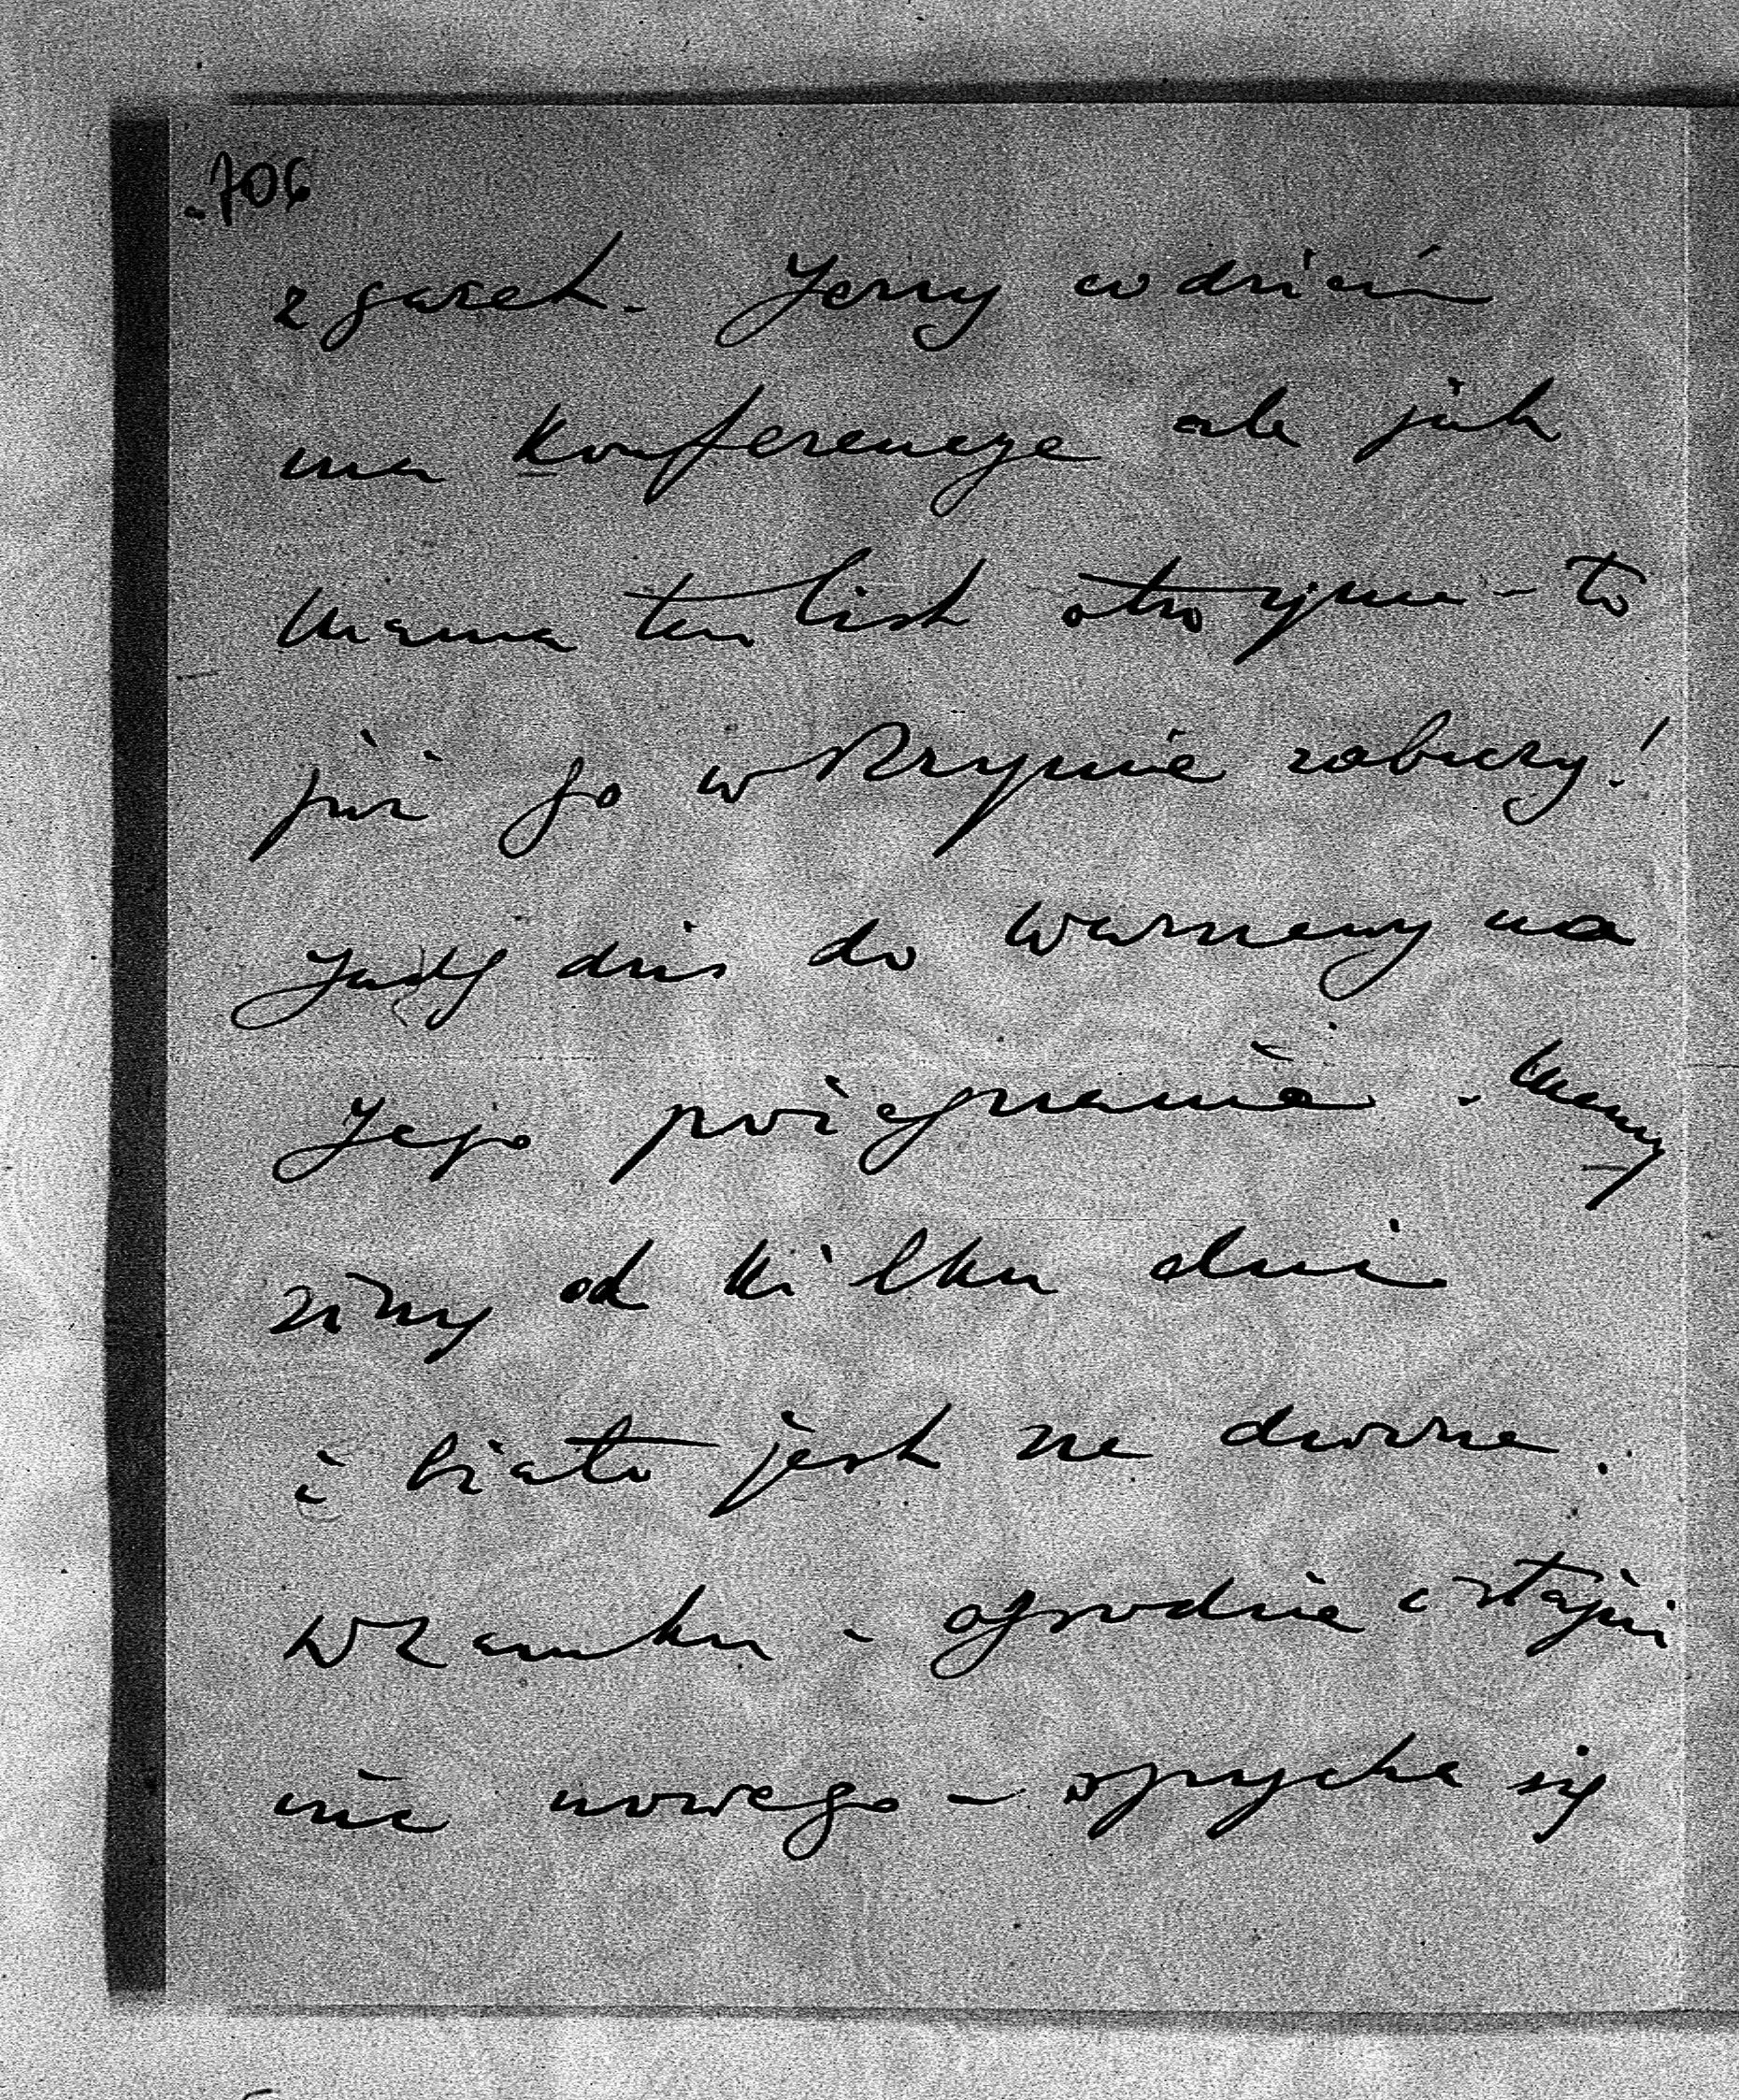 706
z gazet. Jerzy codzień
ma Konferencye ale jak
Mama ten list otrzyma - to
już go w Rzymie zobaczy!
Jadę dziś do Warszawy na
Jego pożegnanie. Mamy
zimy od kilku dni
i biało jest na dworze.
W Zamku - ogrodzie i stajni
nic nowego - wprycha się